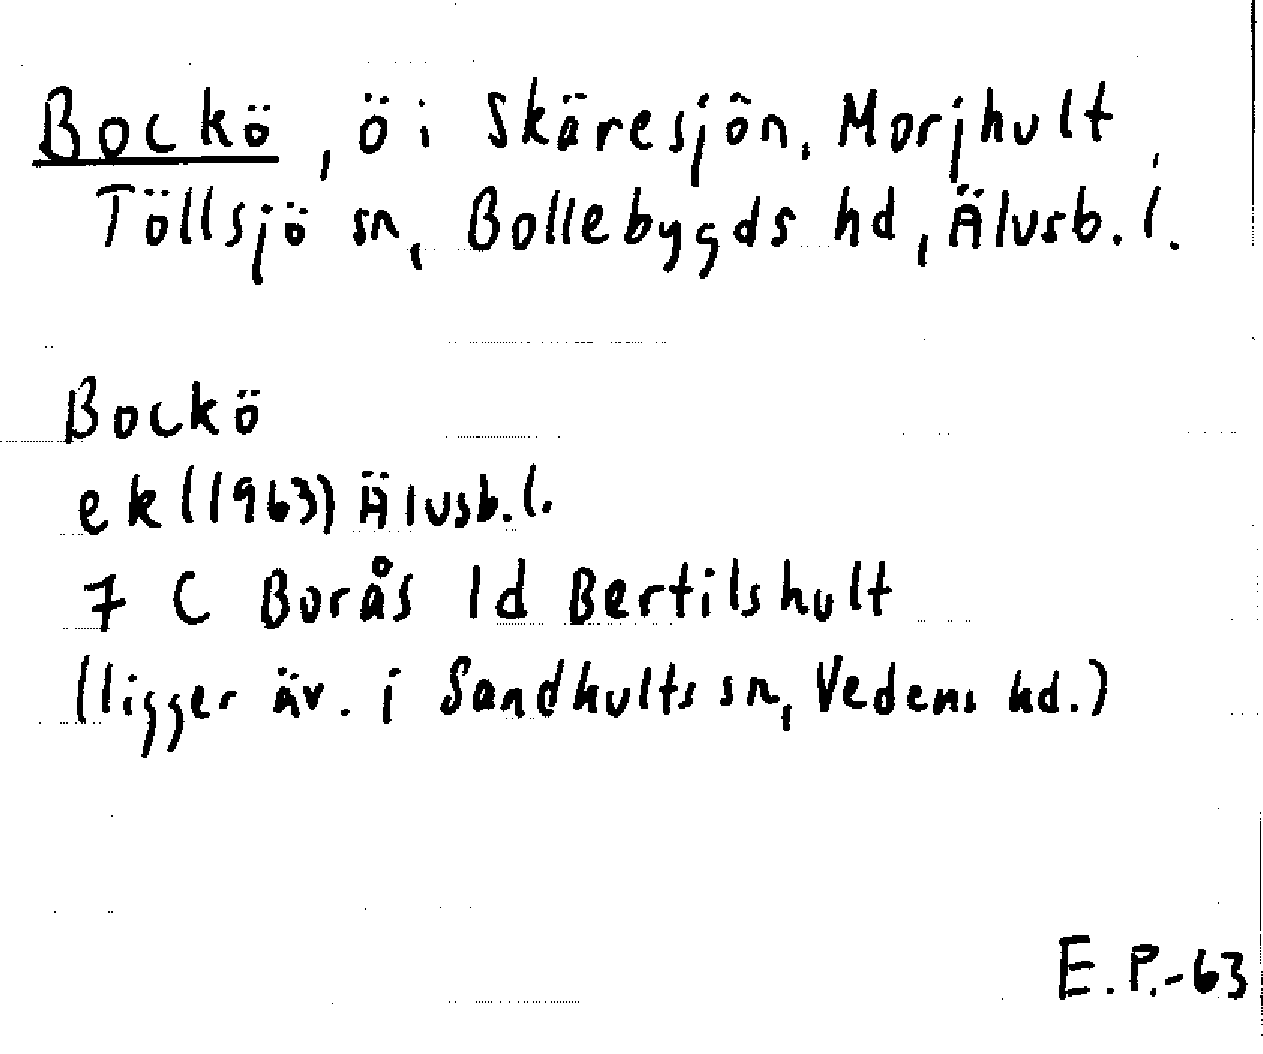 Bockö, ö i Skäresjön, Morjhult,
Töllsjö sn, Bollebygds hd, Älvsb. l.
Bockö
ek (1963) Älvsb. l.
7 C Borås 1d Bertilshult
(ligger äv. i Sandhults sn, Vedens hd.)
E.P.-63